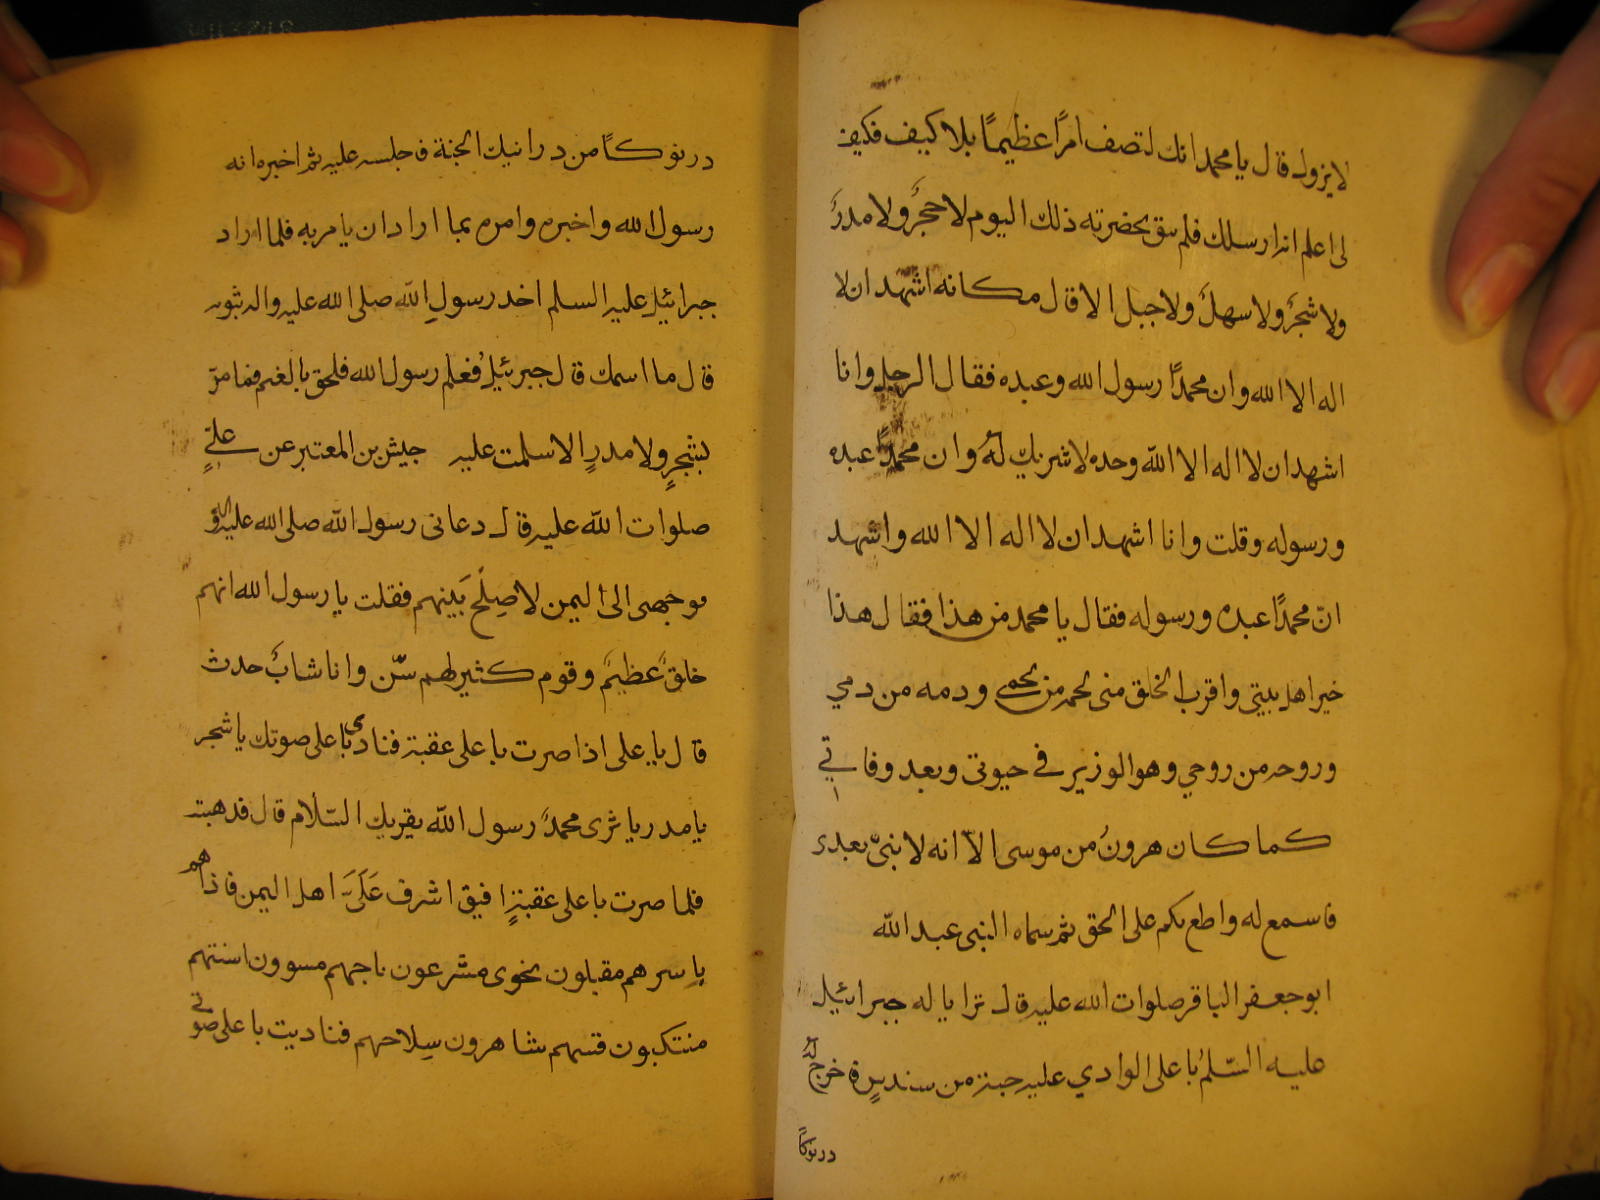 لا يزول قال يا محمد انك لتصف امرًا عظيمًا بلا كيف فكيف
لى اعلم انه ارسلك فلم يبق بحضرته ذلك اليوم لا حجرٌ ولا مدرٌ
ولا شجرٌ ولا سهلٌ ولا جبل الا قال مكانه اشهد ان لا
اله الا الله وان محمدًا رسول الله وعبده فقال الرجل وانا
اشهد ان لا اله الا الله وحده لا شريك له وان محمدًا عبده
ورسوله وقلت وانا اشهد ان لا اله الا الله واشهد
انّ محمدًا عبده ورسوله فقال يا محمد من هذا فقال هذا
خير اهل بيتي واقرب الخلق منى لحمه من لحمي ودمه من دمي
وروحه من روحي وهو الوزير في حيوتى وبعد وفاتي
كما كان هرونُ من موسى الا انه لا نبىّ بعدى
فاسمع له واطع يكم على الحق ثم سماه النبى عبد الله
ابو جعفر الباقر صلوات الله عليه قال ترايا له جبرائيل
عليه السّلم باعلى الوادي عليه جبة من سندسٍ فاخرج لهُ
درنوكًا
درنوكًا من درانيك الجنة فاجلسه عليه ثم اخبره انه
رسول الله واخبره وامره بما اراد ان يامر به فلما اراد
جبرائيل عليه السلم اخد رسولِ الله صلى الله عليه واله بثوبه
قال ما اسمك قال جبرئيل فعلم رسول الله فلحق بالغنم فما مرّ
بشجرٍ ولا مدرٍ الا سلمت عليه جيش بن المعتبر عن علىٍّ
صلوات الله عليه قال دعانى رسول الله صلى الله عليه واله
فوجهنى الى اليمن لاصلح بينهم فقلت يا رسول الله انهم
خلقٌ عظيمٌ وقوم كثير لهم سنّ وانا شابٌ حدث
قال يا على اذا صرت باعلى عقبة فنادى باعلى صوتك يا شجر
يا مدر يا ثرى محمدٌ رسول الله يقريك السّلام قال فدهبت
فلما صرت باعلى عقبةٍ افيق اشرف عَلَىَّ اهل اليمن فاذا هم
باسرهم مقبلون نحوى مشرعون ماجهم مسوون اسنتهم
منتكبون قسهم شاهرون سِلاحهم فناديت باعلى صوتي